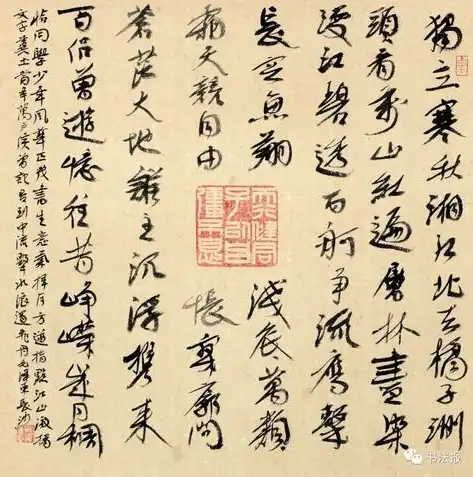 獨立寒秋湘江北去橘子洲
頭看萬山紅遍層林盡染
漫江碧透百舸爭流鷹擊
長空魚翔淺底萬類
霜天競自由悵寥廓問
蒼茫大地誰主沉浮攜來
百侶曾遊憶往昔崢嶸歲月稠
恰同學少年風華正茂書生意氣揮斥方遒指點江山激揚
文字糞土當年萬戶侯曾記否到中流擊水浪遏飛舟毛澤東長沙
书法报